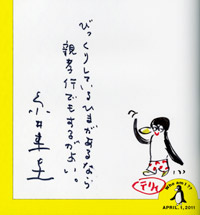 びっくりしているひまがあるなら
親孝行でもするがよい。
テリィ
who am I ??
APRIL.1.2011